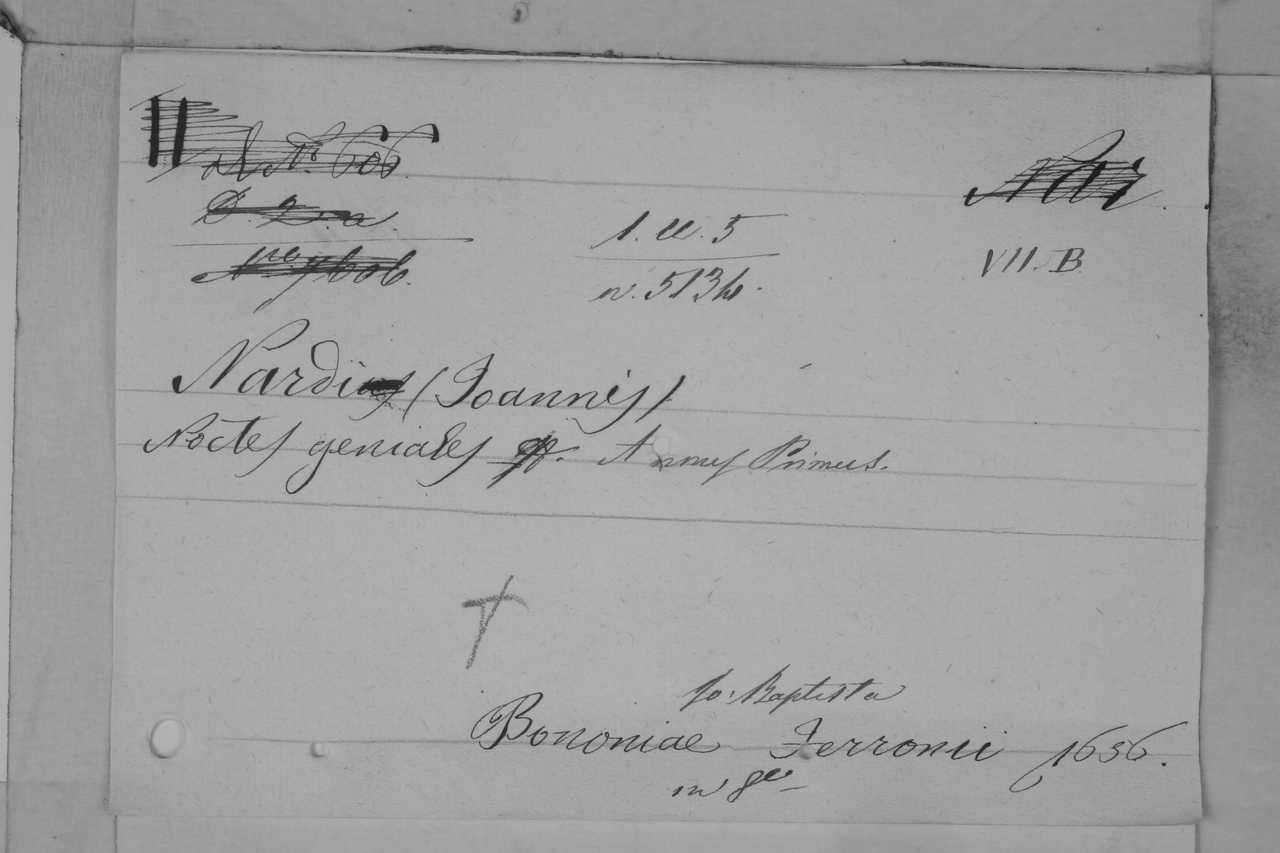 II
al N.º 606.
D. 2. a.
1. cc. 5
n. 5134.
VII. B
Nardi (Joannis)
Noctes geniales Annus Primus.
Jo: Baptista
Bononiae Ferronii 1656.
in 8º